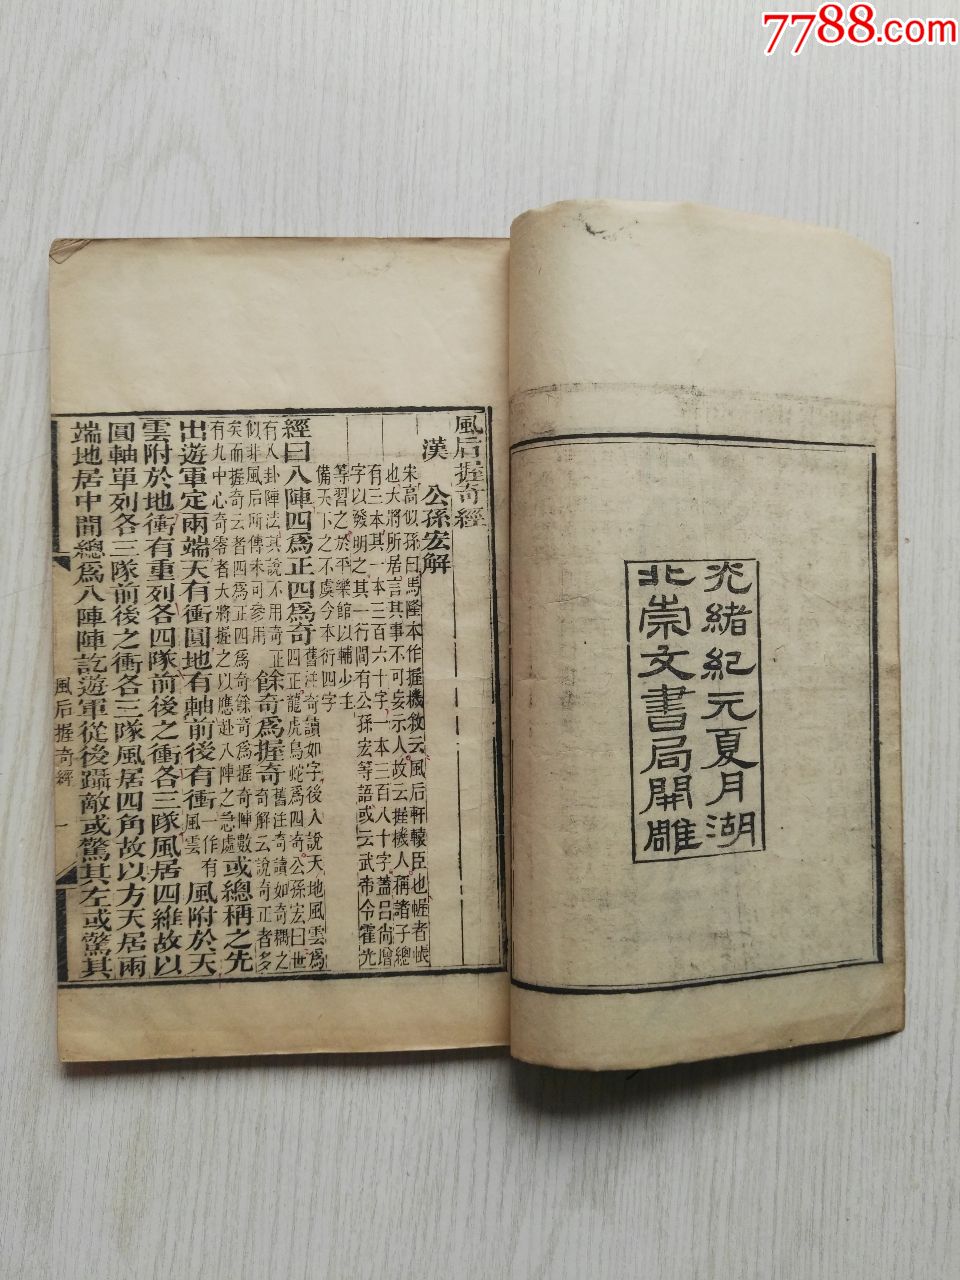 7788.com
光緒紀元夏月湖
北崇文書局開雕
風后握奇經
漢 公孫宏解
宋高似孫曰馬隆本作握機敘云風后軒轅臣也幄者帳
也大將所居言其事不可妄示人故云握機人稱諸子總
有三本其一本三百六十字一本三百八十字蓋呂尚增
字以發明之其一行間有公孫宏等語或云武帝令霍光
等習之於平樂館以輔少主
備天下之不虞今本衍四字
經曰八陣四爲正四爲奇舊注奇讀如字後人說天地風雲爲四正龍虎鳥蛇爲四奇公孫宏曰世
有八卦陣法其說不用奇正似非風后所傳未可參用餘奇爲握奇舊注奇讀如奇耦之奇解云說奇正者多
矣而握奇云者四爲正四爲奇餘奇爲握奇陣數有九中心奇零者大將握之以應赴八陣之急處或總稱之先
出遊軍定兩端天有衝圓地有軸前後有衝一作有風雲風附於天
雲附於地衝有重列各四隊前後之衝各三隊風居四維故以
圓軸單列各三隊前後之衝各三隊風居四角故以方天居兩
端地居中間總爲八陣陣訖遊軍從後躡敵或驚其左或驚其
風后握奇經 一